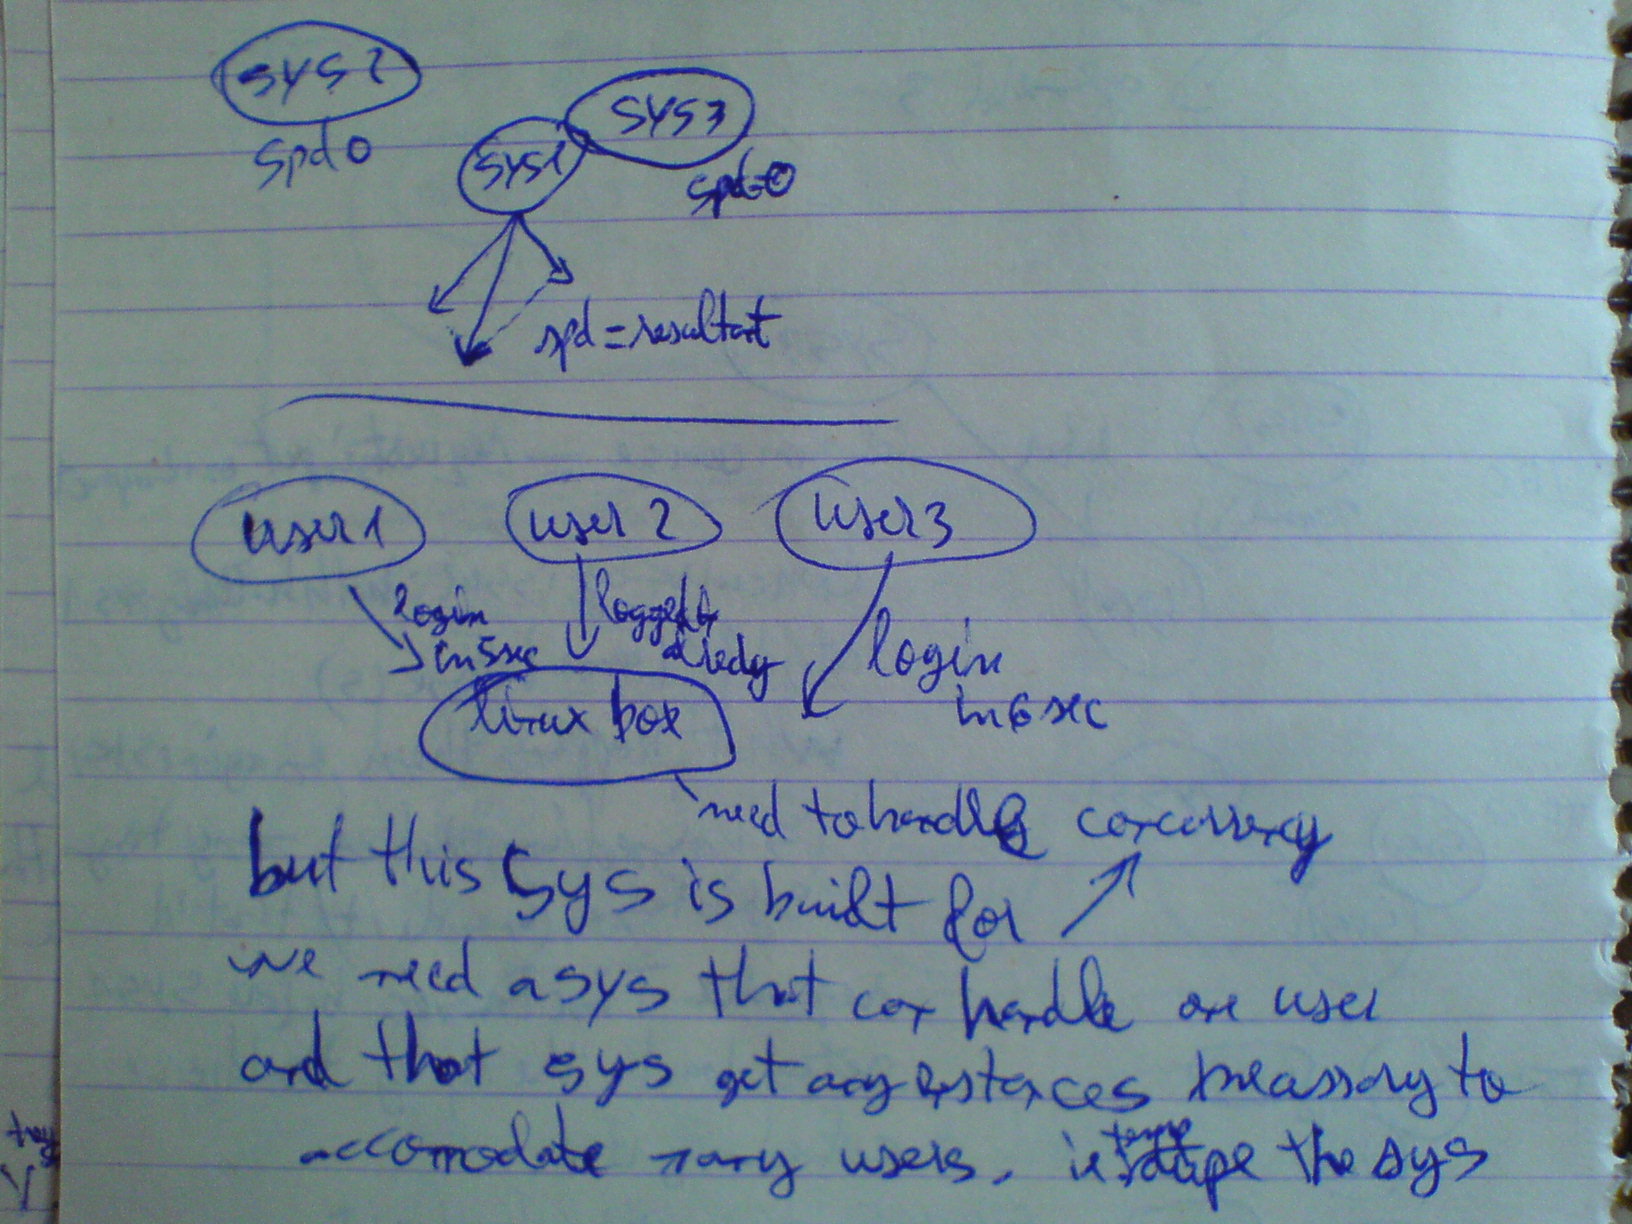 sys2
spd0
sys1
sys3
spd=0
spd=resultat
user1
user 2
user3
login
in 5sec
logged
alredy
login
in 6 sec
linux box
need to handle concurrency
but this sys is built for
we need a sys that can handle one user
and that sys get any instances necessary to
accomodate many users. ie the sys